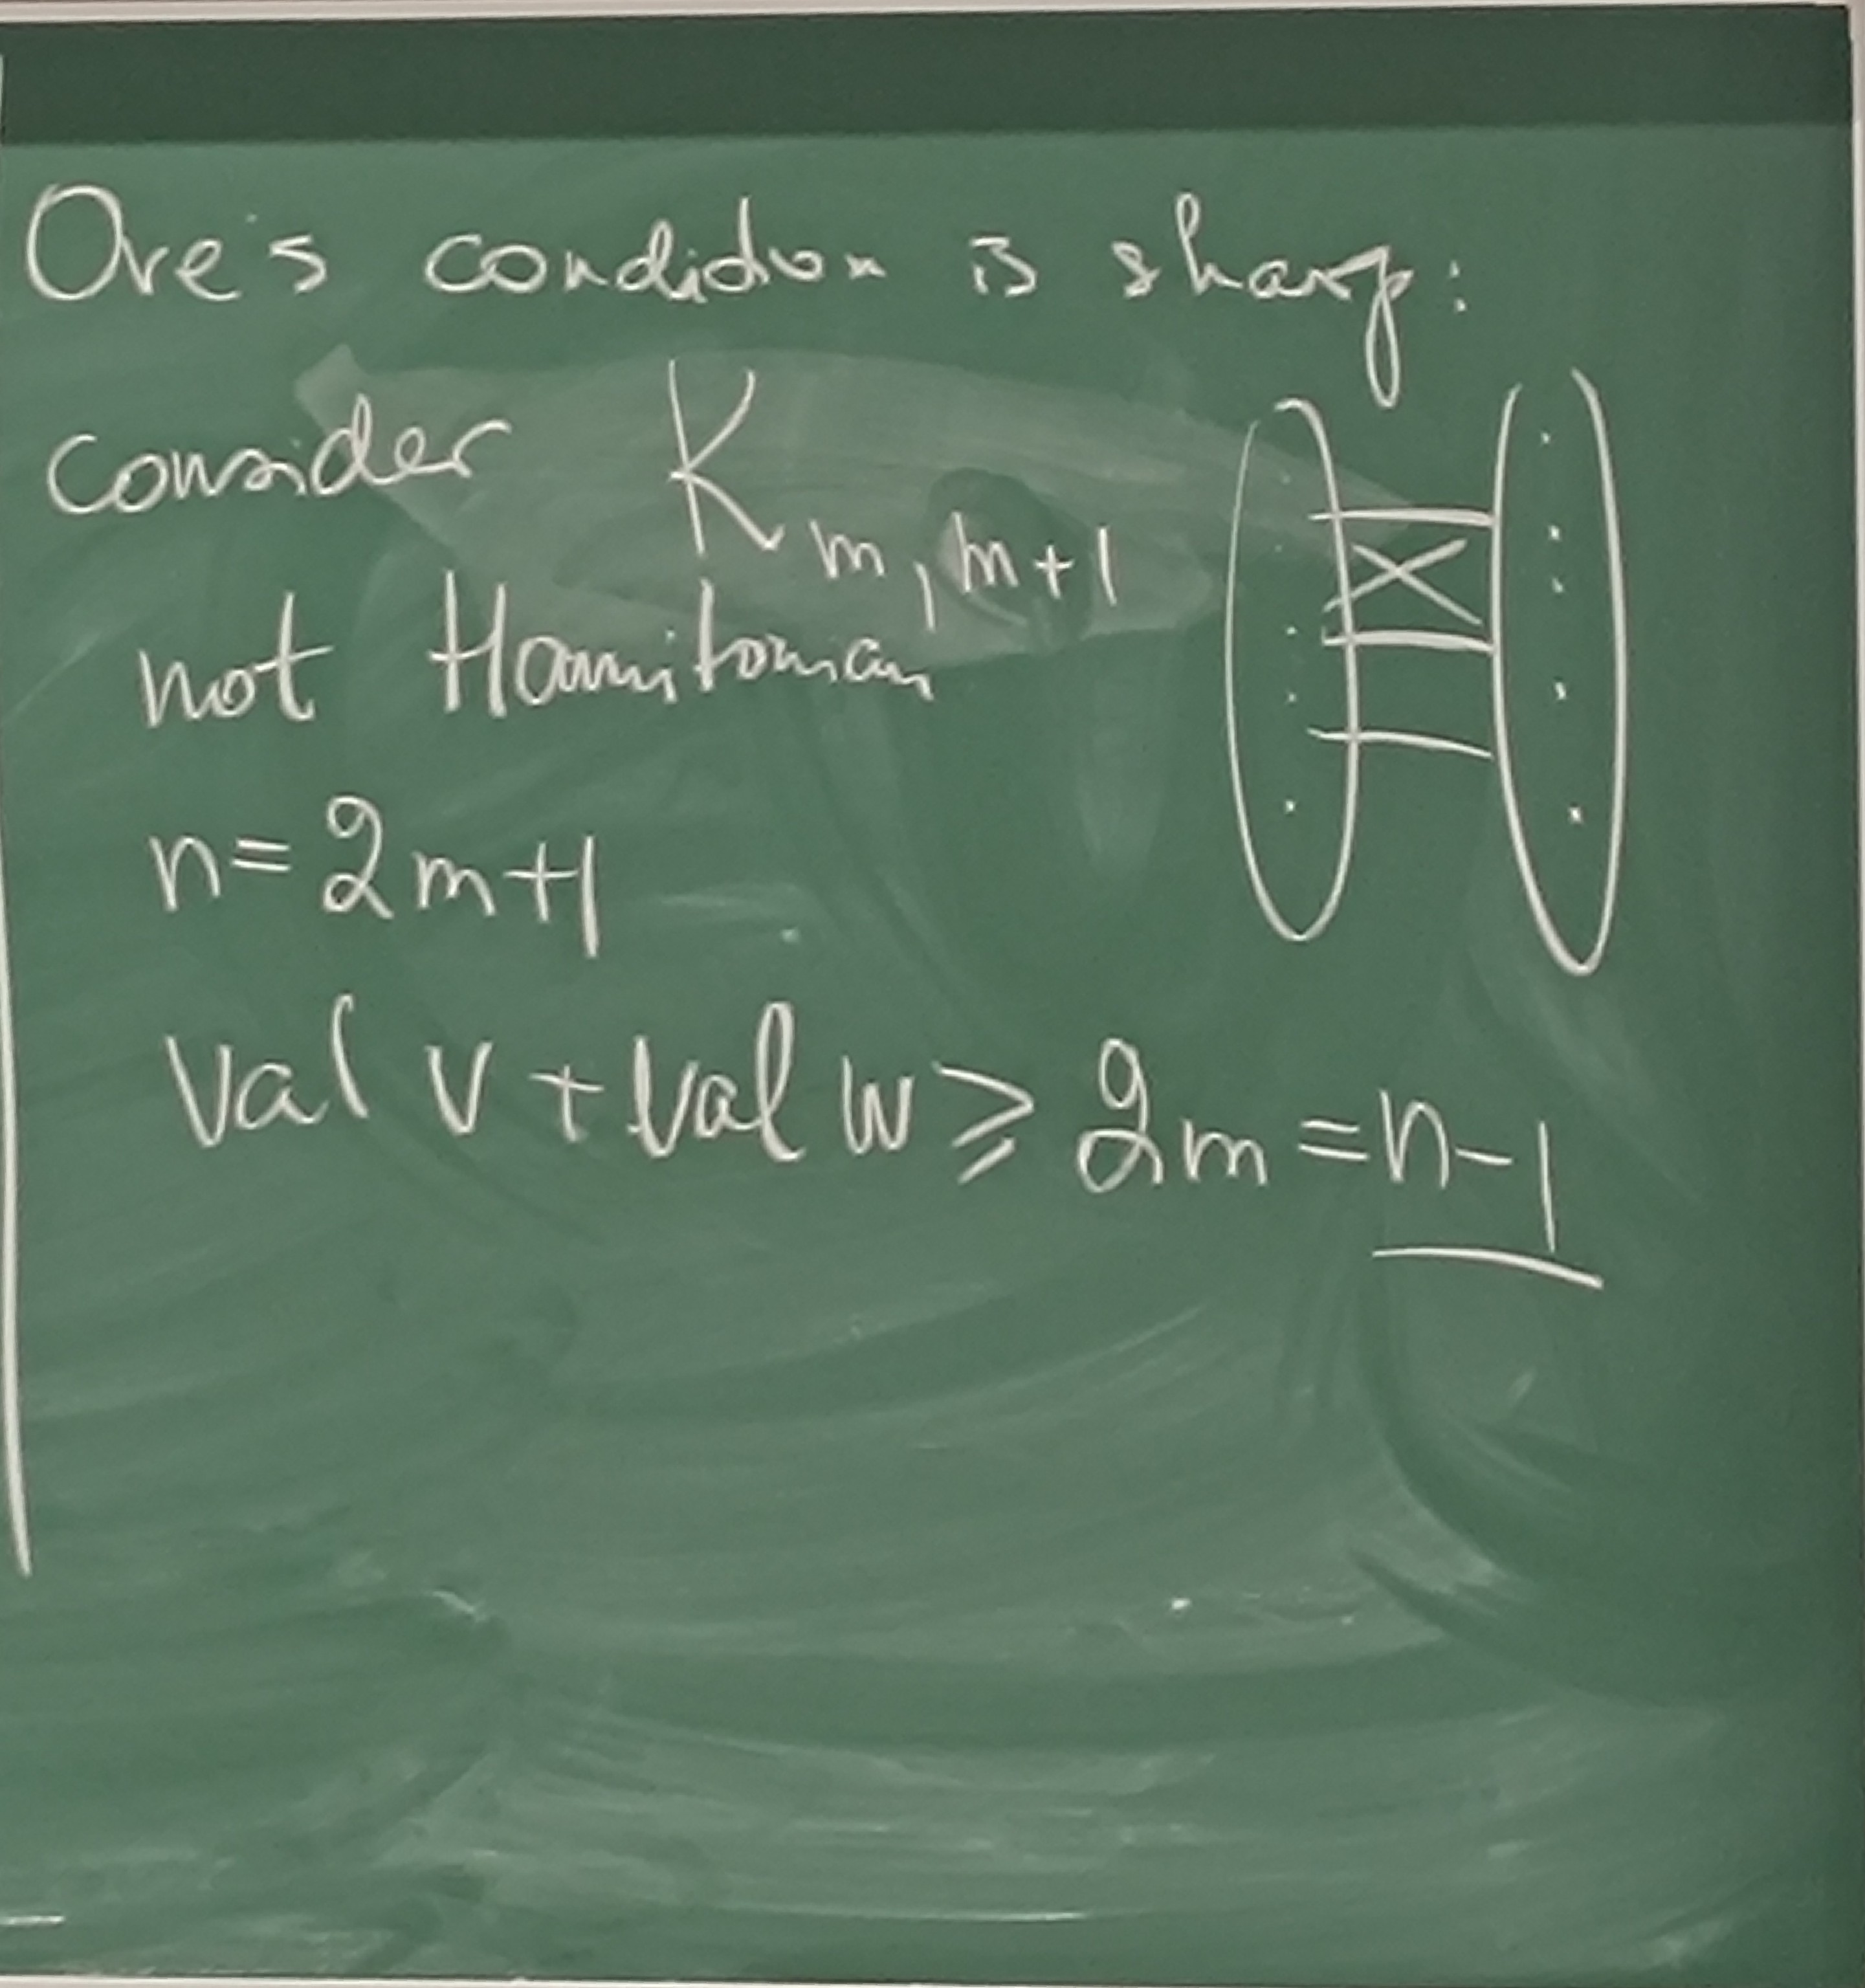 Ore's condition is sharp:
consider K_{m,m+1}
not Hamiltonian
n=2m+1
val v + val w ≥ 2m = n-1